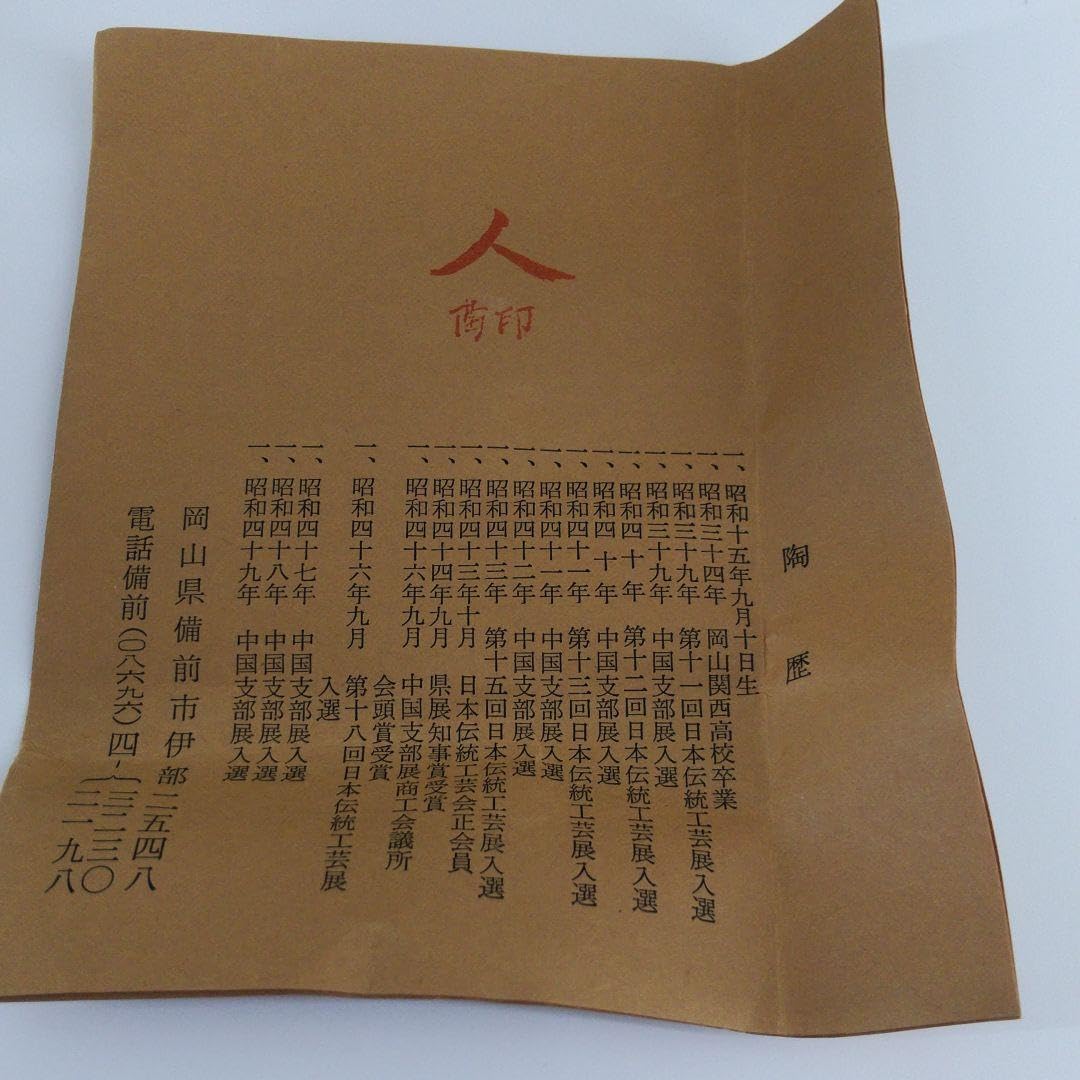 人
印
陶歴
一、昭和十五年九月十日生
一、昭和三十四年 岡山関西高校卒業
一、昭和三十九年 第十一回日本伝統工芸展入選
一、昭和三十九年 中国支部展入選
一、昭和四十年 第十二回日本伝統工芸展入選
一、昭和四十年 中国支部展入選
一、昭和四十一年 第十三回日本伝統工芸展入選
一、昭和四十一年 中国支部展入選
一、昭和四十二年 中国支部展入選
一、昭和四十三年 第十五回日本伝統工芸展入選
一、昭和四十三年十月 日本伝統工芸会正会員
一、昭和四十四年九月 県展知事賞受賞
一、昭和四十六年九月 中国支部展商工会議所
会頭賞受賞
一、昭和四十六年九月 第十八回日本伝統工芸展
入選
一、昭和四十七年 中国支部展入選
一、昭和四十八年 中国支部展入選
一、昭和四十九年 中国支部展入選
岡山県備前市伊部二五四八
電話備前(〇八六九六)四-三二三〇
二一九八